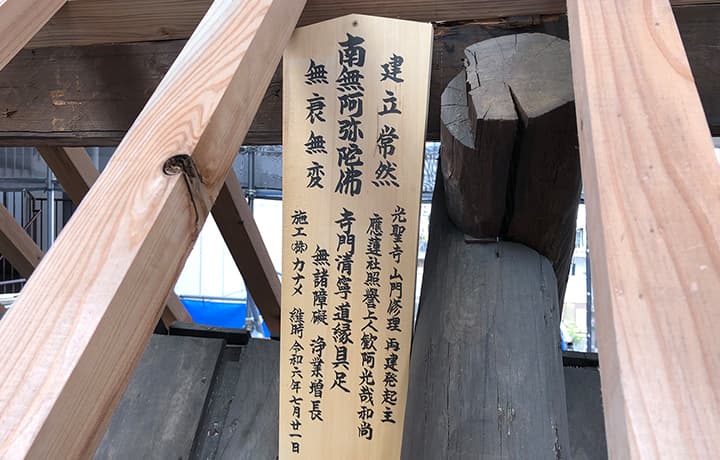 建立常然
光聖寺 山門修理 再建発起主
應蓮社照譽上人歓阿光哉和尚
南無阿弥陀佛 寺門清寧道縁具足
無衰無変 無諸障礙 浄業増長
施工 ㈱カナメ 維時令和六年七月廿一日